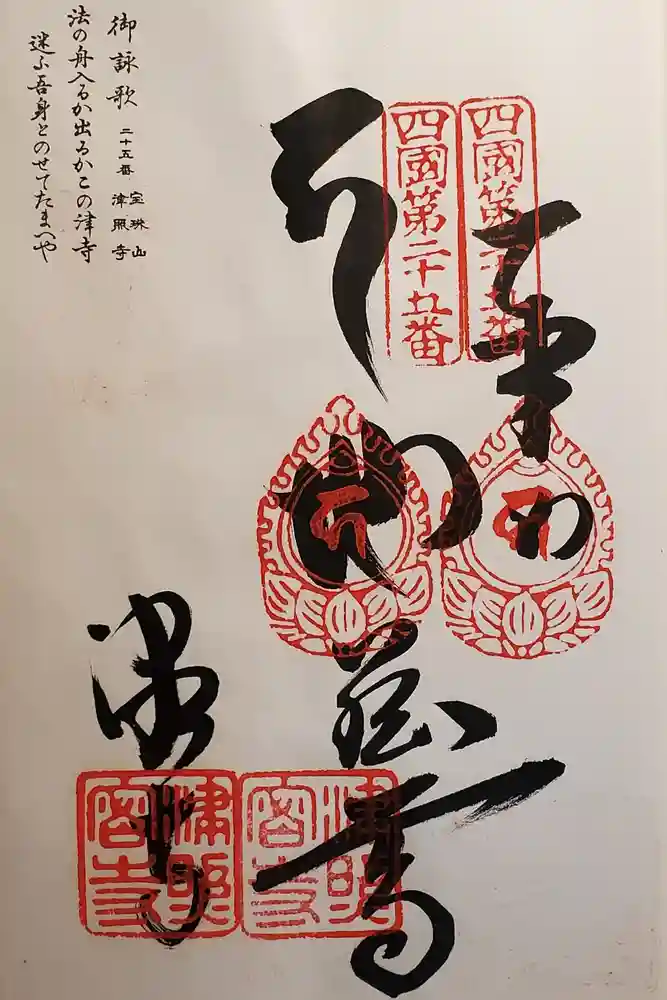 奉
四國第二十五番
四國第二十五番
地蔵尊
津寺
御詠歌
二十五番
宝珠山
津照寺
法の舟入るか出るかこの津寺
迷ふ吾身をのせてたまへや